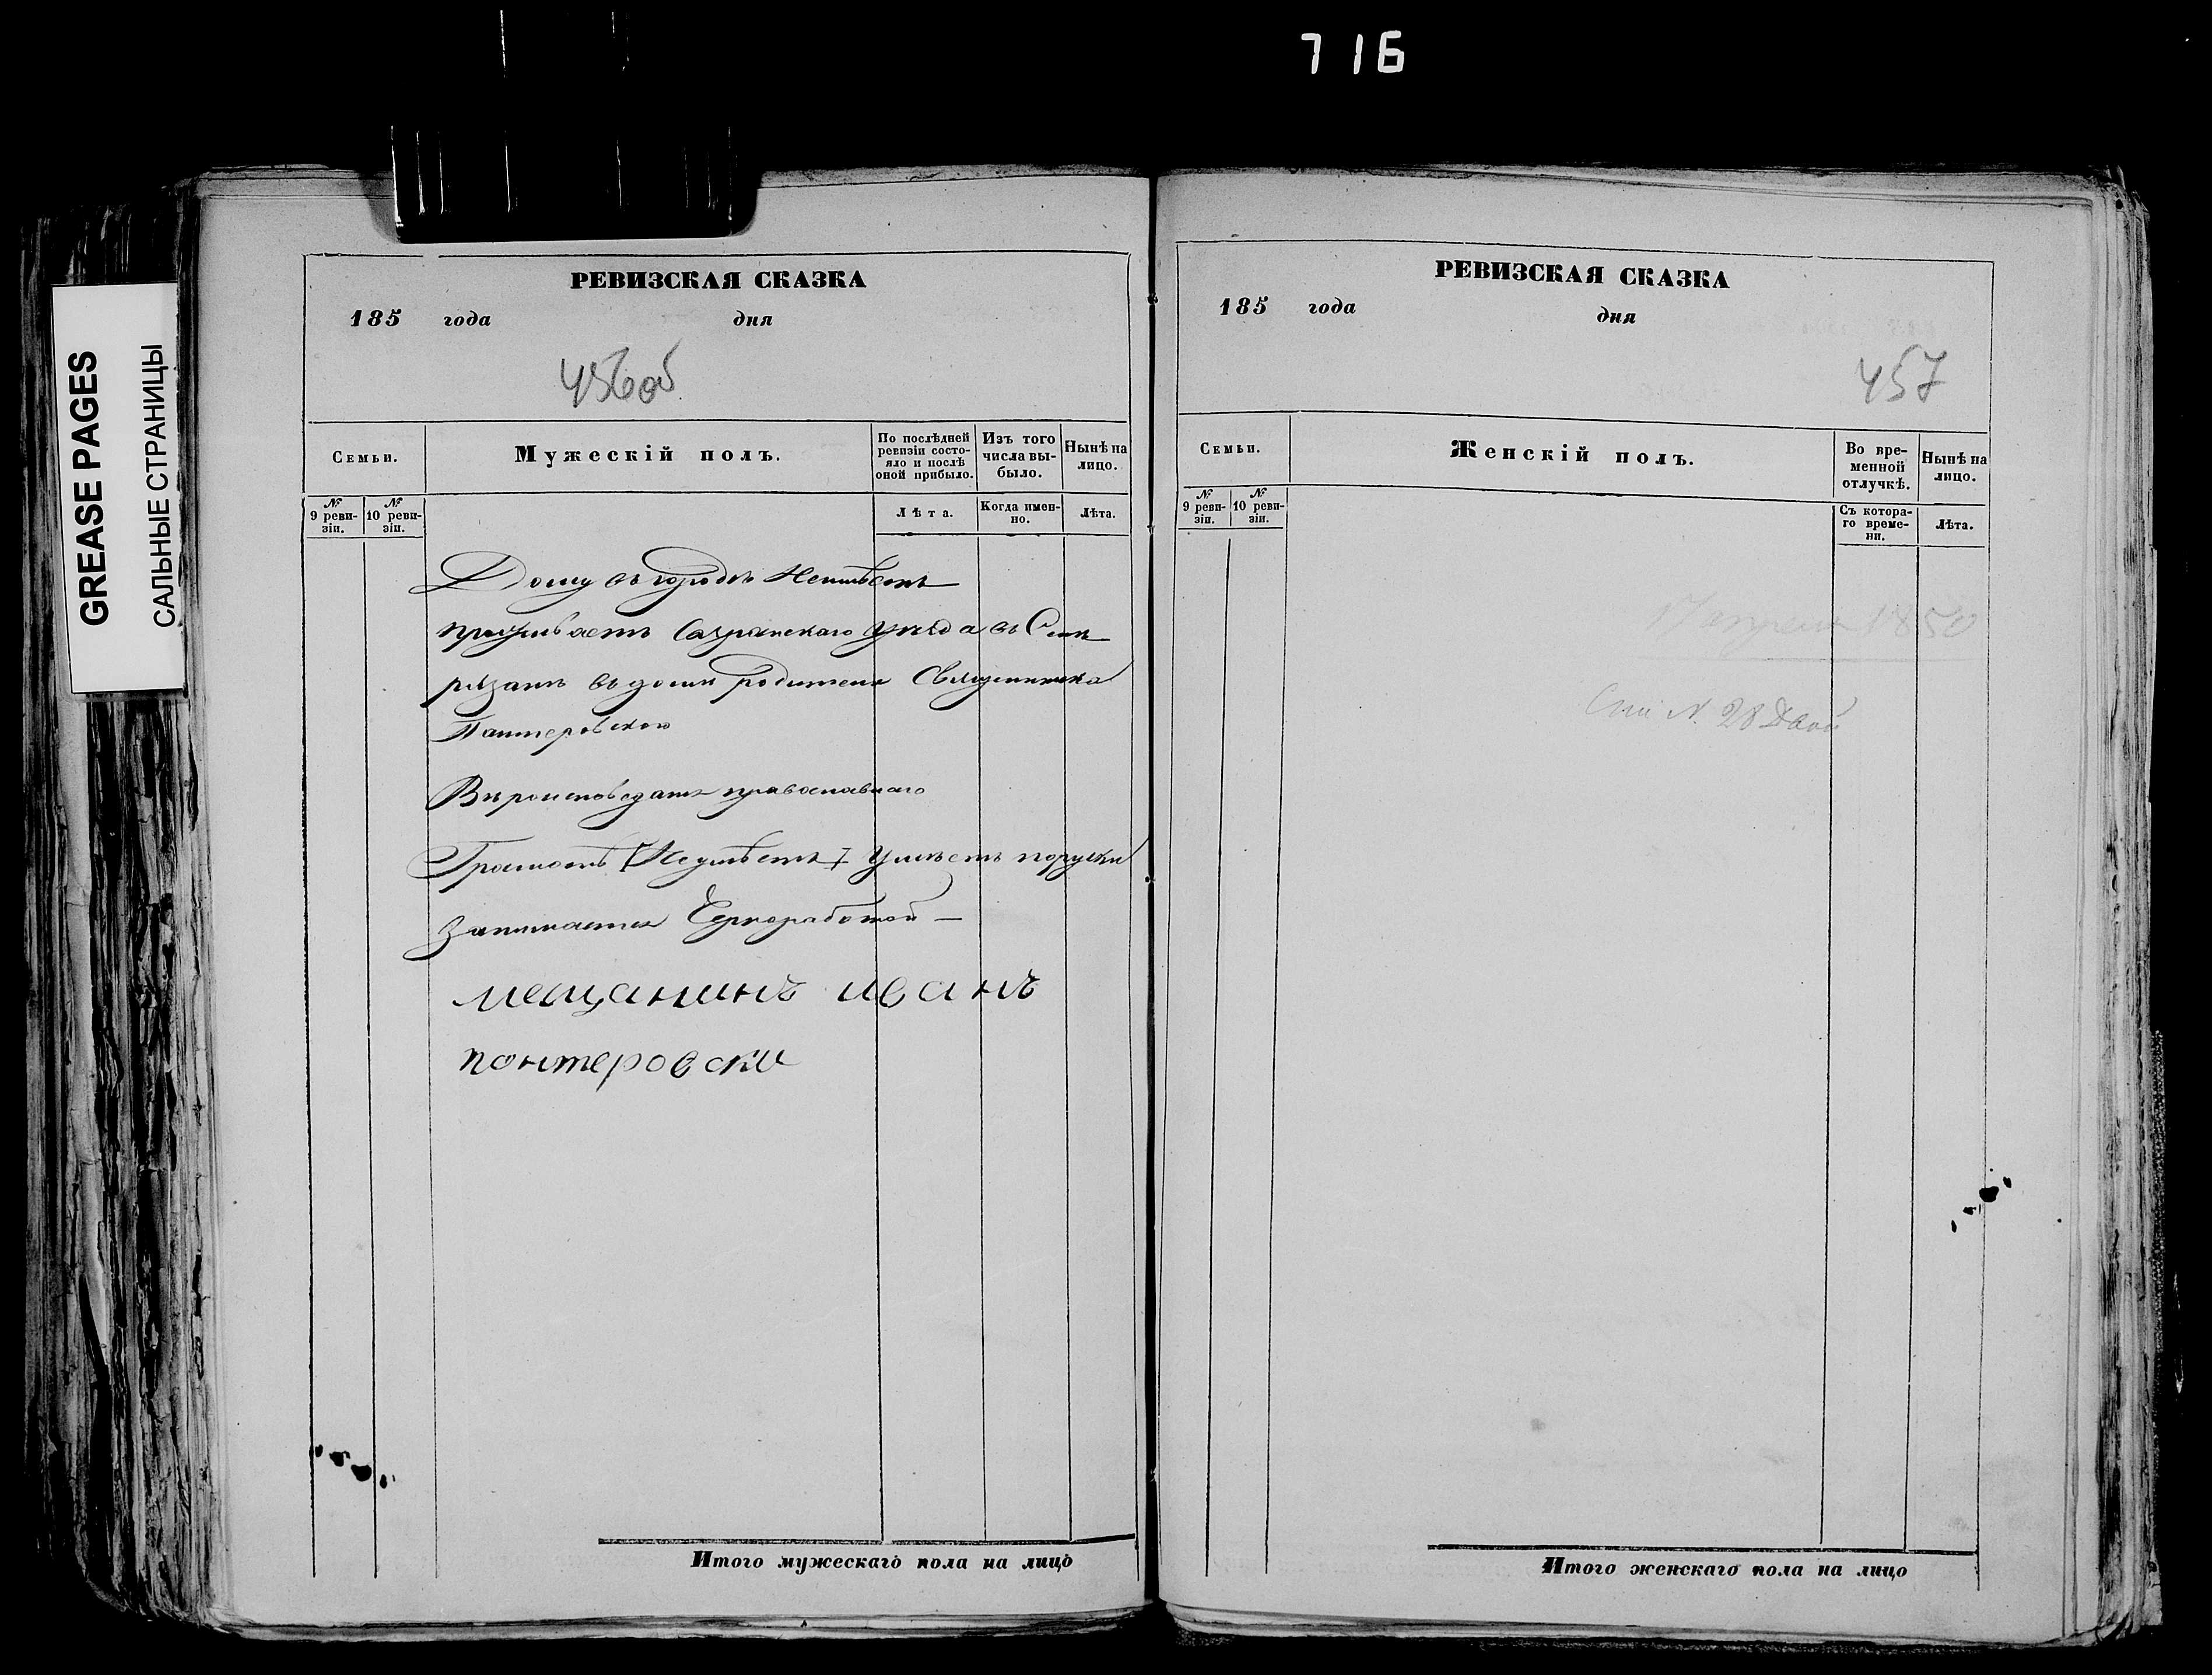 716
GREASE PAGES
САЛЬНЫЕ СТРАНИЦЫ
РЕВИЗСКАЯ СКАЗКА
185 года дня
456об
Семьи.
Мужескій полъ.
По послѣдней ревизіи состояло и послѣ оной прибыло.
Изъ того числа выбыло.
Нынѣ на лицо.
№ 9 ревизіи.
№ 10 ревизіи.
Лѣта.
Когда именно.
Лѣта.
Дому въ городѣ Неимѣетъ
проживаетъ уѣзда въ
въ домѣ родителя Священника
Пантеровскаго
Вѣроисповеданія православнаго
Грамотѣ [Неумѣетъ] Умѣетъ поруски
Занимается Черноработой —
мещанинъ иванъ
понтеровски
Итого мужескаго пола на лицо
РЕВИЗСКАЯ СКАЗКА
185 года дня
457
Семьи.
Женскій полъ.
Во временной отлучкѣ.
Нынѣ на лицо.
№ 9 ревизіи.
№ 10 ревизіи.
Съ котораго времени.
Лѣта.
1850
№ 28
Итого женскаго пола на лицо